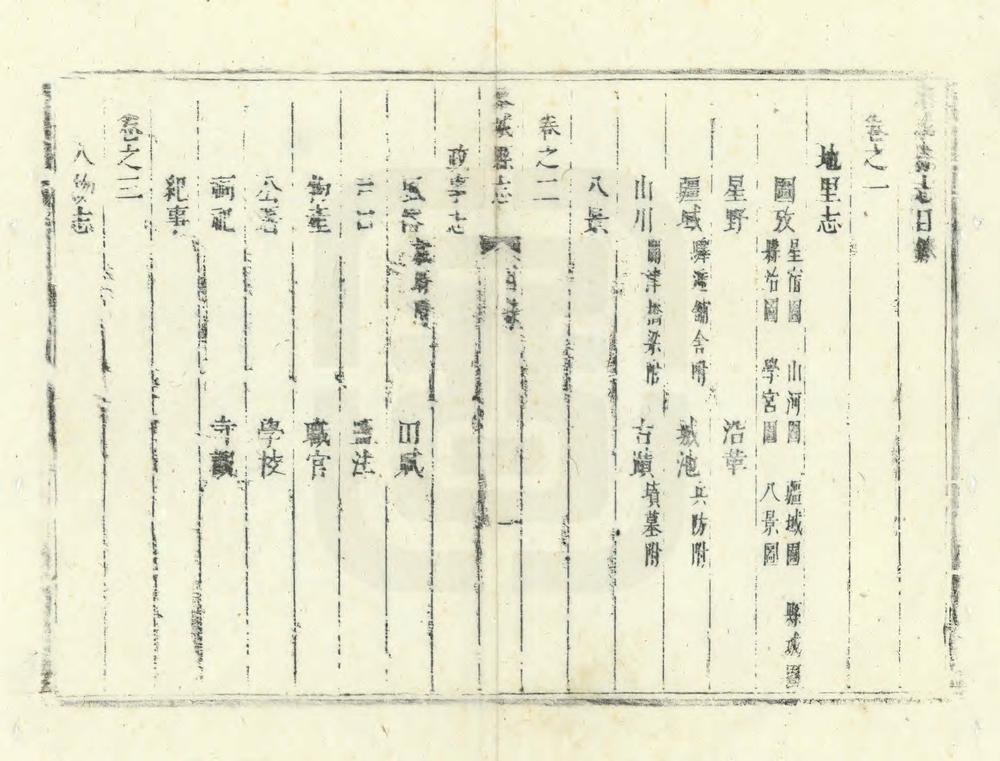 縣志目錄
卷之一
地里志
圖攷 星宿圖 山河圖 疆域圖 縣城圖
縣治圖 學宮圖 八景圖
星野 沿革
疆域 驛遞鋪舍附 城池 兵防附
山川 關津橋梁附 古蹟 墳墓附
八景
卷之二
城縣志 目錄 一
政事志
風俗 田賦
物產 職官
公署 學校
祠祀 寺觀
紀事
卷之三
人物志